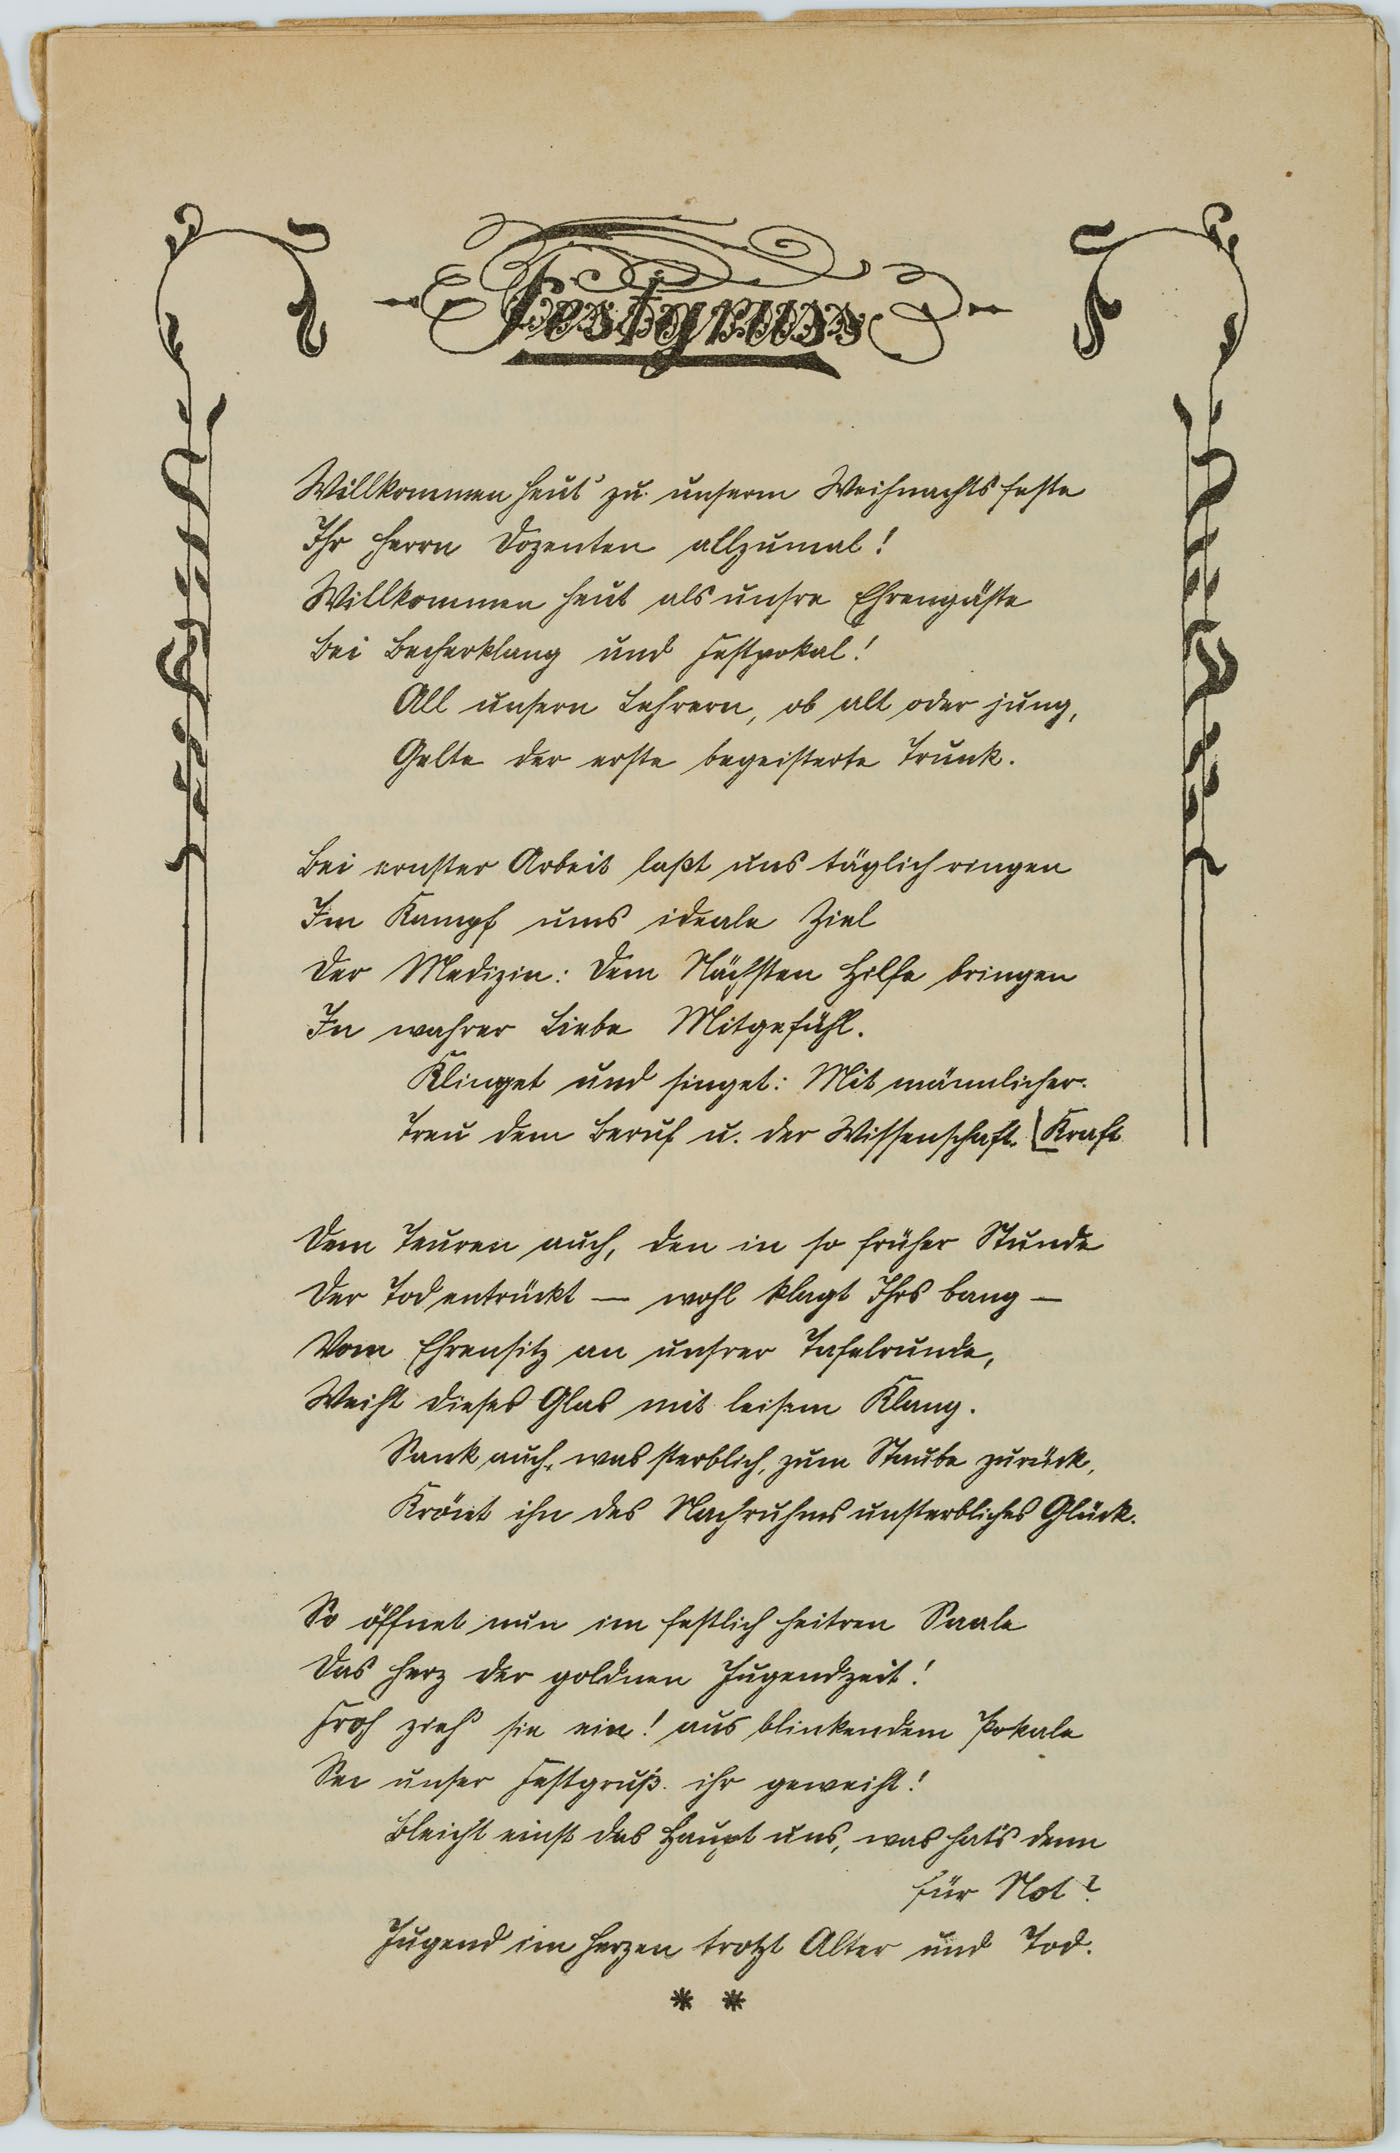 Festgruss
Willkommen heut' zu unserm Weihnachtsfeste
Ihr Herrn Dozenten allzumal!
Willkommen heut als unsre Ehrengäste
Bei Becherklang und Festpokal!
All unsern Lehrern, ob alt oder jung,
Gelte der erste begeisterte Trunk.
Bei ernster Arbeit laßt uns täglich ringen
Im Kampf ums ideale Ziel
Der Medizin: Dem Nächsten Hilfe bringen
In wahrer Liebe Mitgefühl.
Klinget und singet: Mit männlicher
Treu dem Beruf u. der Wissenschaft. [Kraft
Dem Teuren auch, den in so früher Stunde
Der Tod entrückt — wohl klagt Ihrs bang —
Vom Ehrensitz an unsrer Tafelrunde,
Weiht dieses Glas mit leisem Klang.
Sank auch, was sterblich, zum Staube zurück,
Krönt ihn des Nachruhms unsterbliches Glück.
So öffnet nun im festlich heitren Saale
Das Herz der goldnen Jugendzeit!
Froh zieh' sie ein! aus blinkendem Pokale
Sei unser Festgruß ihr geweiht!
Bleicht einst das Haupt uns, was hat's denn
für Not?
Jugend im Herzen trotzt Alter und Tod.
* *